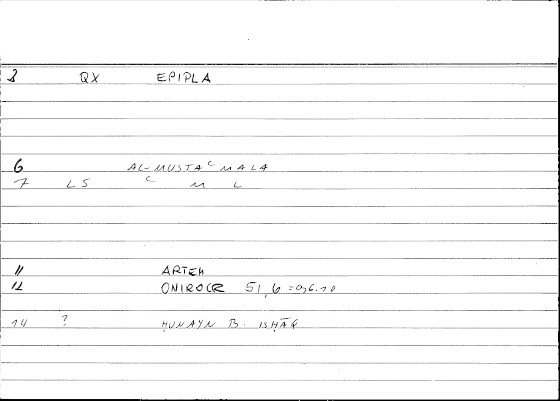 3 QX EPIPLA
6 AL-MUSTAᶜMALA
7 LS ᶜ M L
11 ARTEM
12 ONIROCR 51,6 =
14 ? ḤUNAYN B. ISḤĀQ